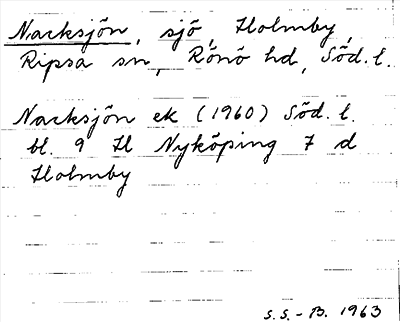 Nacksjön, sjö, Holmby,
Ripsa sn, Rönö hd, Söd. l.
Nacksjön ek (1960) Söd. l.
bl. 9 H Nyköping 7 d
Holmby
S.S.-B. 1963